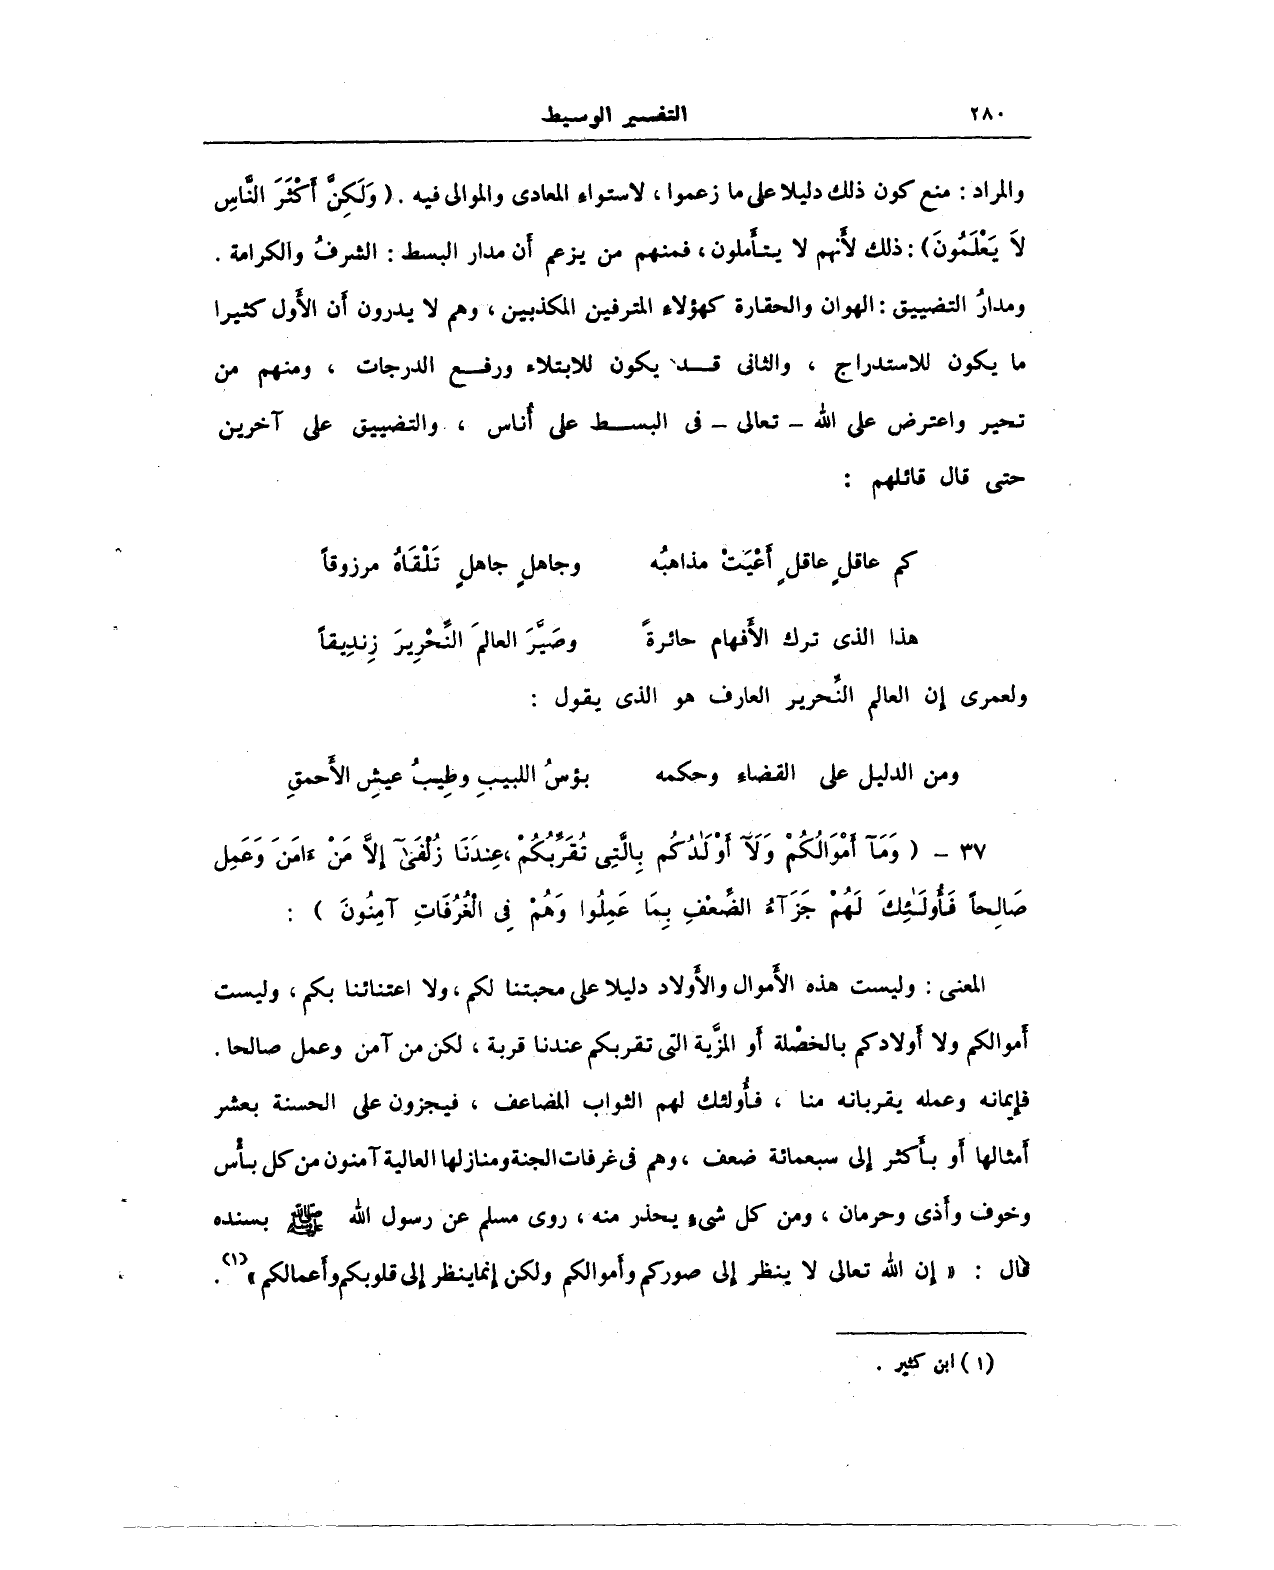 ٢٨٠
التفسير الوسيط
والمراد : منع كون ذلك دليلا على ما زعموا ، لاستواء المعادى والموالى فيه . ( وَلَكِنَّ أَكْثَرَ النَّاسِ
لاَ يَعْلَمُونَ ) : ذلك لأَنهم لا يتأَملون ، فمنهم من يزعم أَن مدار البسط : الشرفُ والكرامة .
ومدارُ التضييق : الهوان والحقارة كهؤلاء المترفين المكذبين ، وهم لا يدرون أَن الأَول كثيرا
ما يكون للاستدراج ، والثانى قد يكون للابتلاء ورفع الدرجات ، ومنهم من
تحير واعترض على الله – تعالى – فى البسط على أُناس ، والتضييق على آخرين
حتى قال قائلهم :
كم عاقلٍ عاقلٍ أَعْيَتْ مذاهبُه وجاهلٍ جاهلٍ تَلْقَاهُ مرزوقاً
هذا الذى ترك الأَفهام حائرةً وصَيَّرَ العالمَ النِّحْرِيرَ زِندِيقاً
ولعمرى إن العالم النِّحرير العارف هو الذى يقول :
ومن الدليل على القضاء وحكمه بؤسُ اللبيبِ وطِيبُ عيشِ الأَحمقِ
٣٧ – ( وَمَآ أَمْوَالُكُمْ وَلَآ أَوْلَٰدُكُم بِالَّتِى تُقَرِّبُكُمْ عِندَنَا زُلْفَىٰٓ إلاَّ مَنْ ءَامَنَ وَعَمِلَ
صَالِحاً فَأُولَٰئِكَ لَهُمْ جَزَآءُ الضِّعْفِ بِمَا عَمِلُوا وَهُمْ فِى الْغُرُفَاتِ آمِنُونَ ) :
المعنى : وليست هذه الأَموال والأَولاد دليلا على محبتنا لكم ، ولا اعتنائنا بكم ، وليست
أَموالكم ولا أَولادكم بالخصْلة أَو المزَّية التى تقربكم عندنا قربة ، لكن من آمن وعمل صالحا .
فإيمانه وعمله يقربانه منا ، فأُولئك لهم الثواب المضاعف ، فيجزون على الحسنة بعشر
أَمثالها أَو بأَكثر إلى سبعمائة ضعف ، وهم فى غرفات الجنة ومنازلها العالية آمنون من كل بأْس
وخوف وأَذى وحرمان ، ومن كل شىء يحذر منه ، روى مسلم عن رسول الله ﷺ بسنده
قال : « إن الله تعالى لا ينظر إلى صوركم وأَموالكم ولكن إنما ينظر إلى قلوبكم وأَعمالكم » (١) .
(١) ابن كثير .